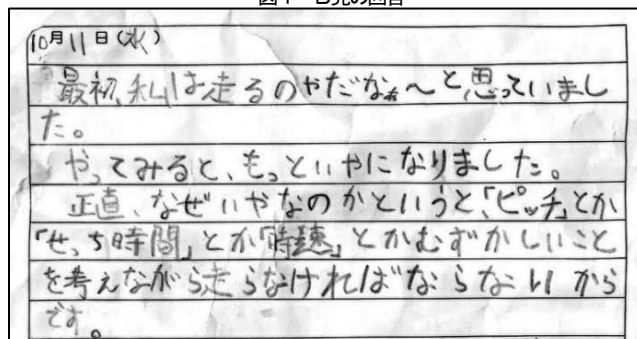 10月11日(水)
最初、私は走るのやだなぁ〜と思っていまし
た。
やってみると、もっといやになりました。
正直、なぜいやなのかというと、「ピッチ」とか
「せっち時間」とか「時速」とかむずかしいこと
を考えながら走らなければならないから
です。